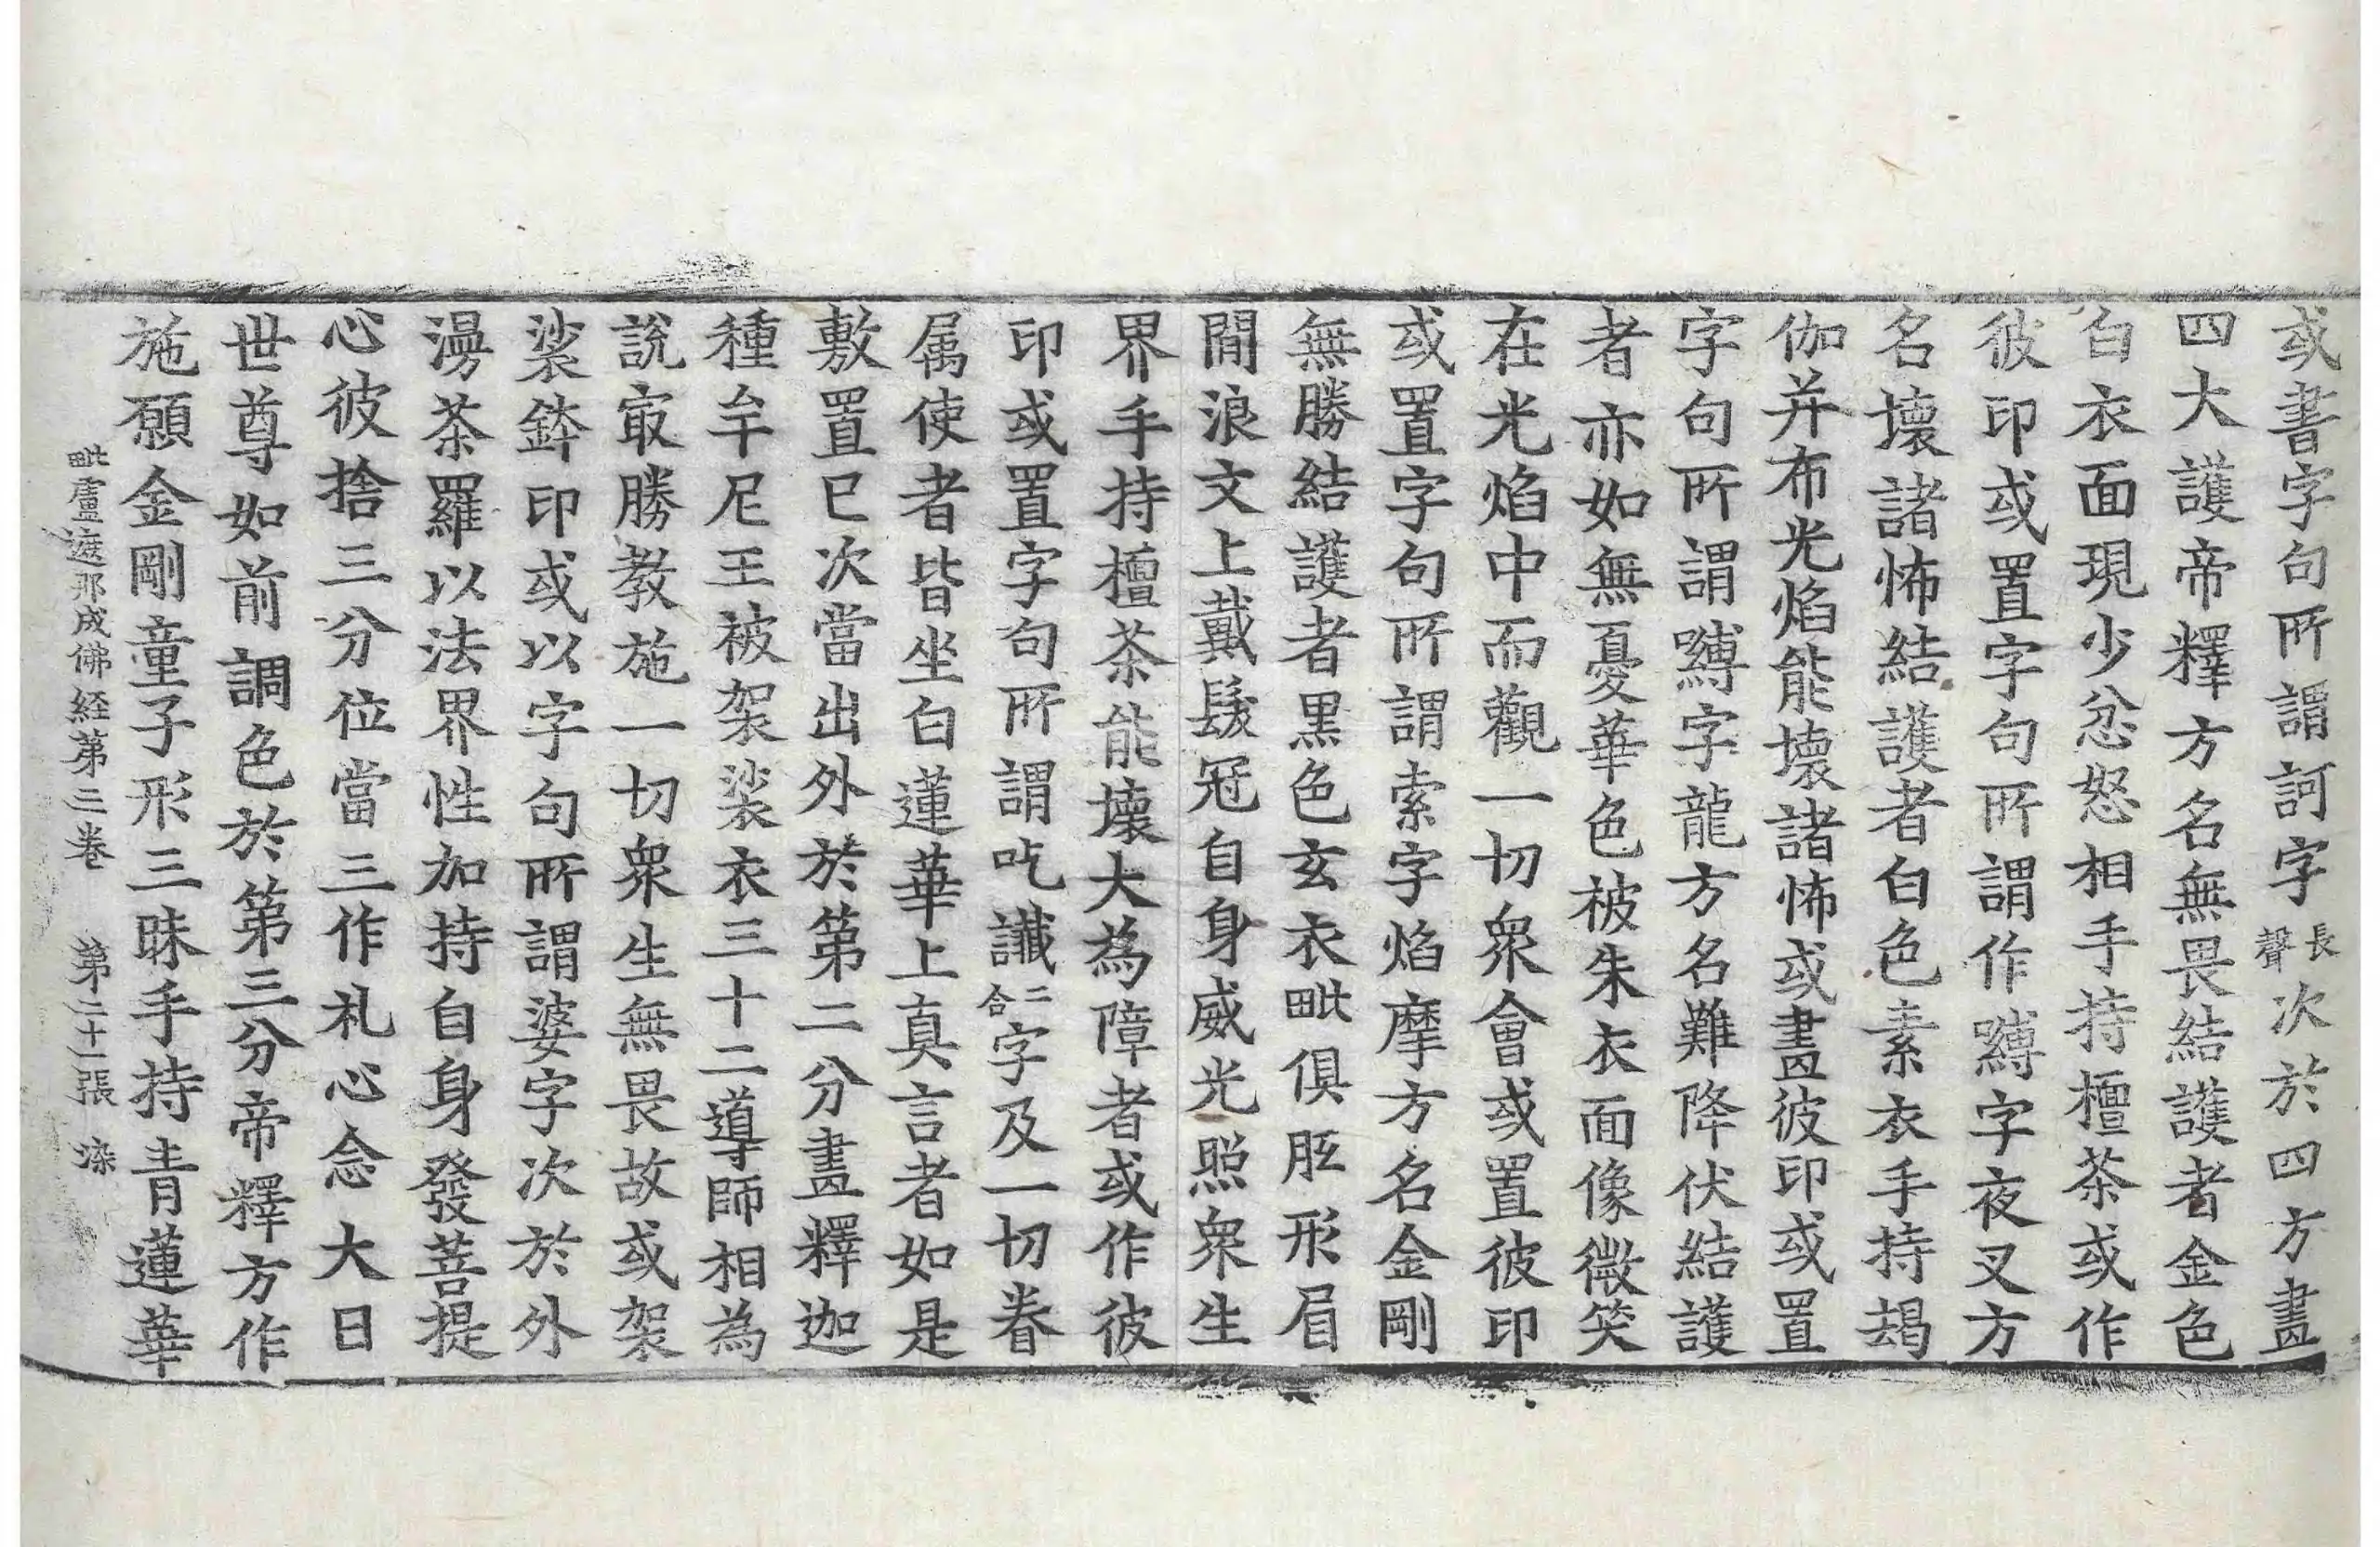 或書字句所謂訶字長聲次於四方畫
四大護帝釋方名無畏結護者金色
白衣面現少忿怒相手持檀茶或作
彼印或置字句所謂作嚩字夜叉方
名壞諸怖結護者白色素衣手持朅
伽并布光焰能壞諸怖或畫彼印或置
字句所謂嚩字龍方名難降伏結護
者亦如無憂華色被朱衣面像微笑
在光焰中而觀一切衆會或置彼印
或置字句所謂索字焰摩方名金剛
無勝結護者黑色玄衣毗俱胝形眉
間浪文上戴髮冠自身威光照衆生
界手持檀茶能壞大為障者或作彼
印或置字句所謂吃讖二合字及一切眷
属使者皆坐白蓮華上真言者如是
敷置已次當出外於第二分畫釋迦
種牟尼王被袈裟衣三十二導師相為
說寂勝教施一切衆生無畏故或袈
裟鉢印或以字句所謂婆字次於外
漫茶羅以法界性加持自身發菩提
心彼捨三分位當三作礼心念大日
世尊如前調色於第三分帝釋方作
施願金剛童子形三昧手持青蓮華
毗盧遮那成佛経第二卷　第二十一張　染